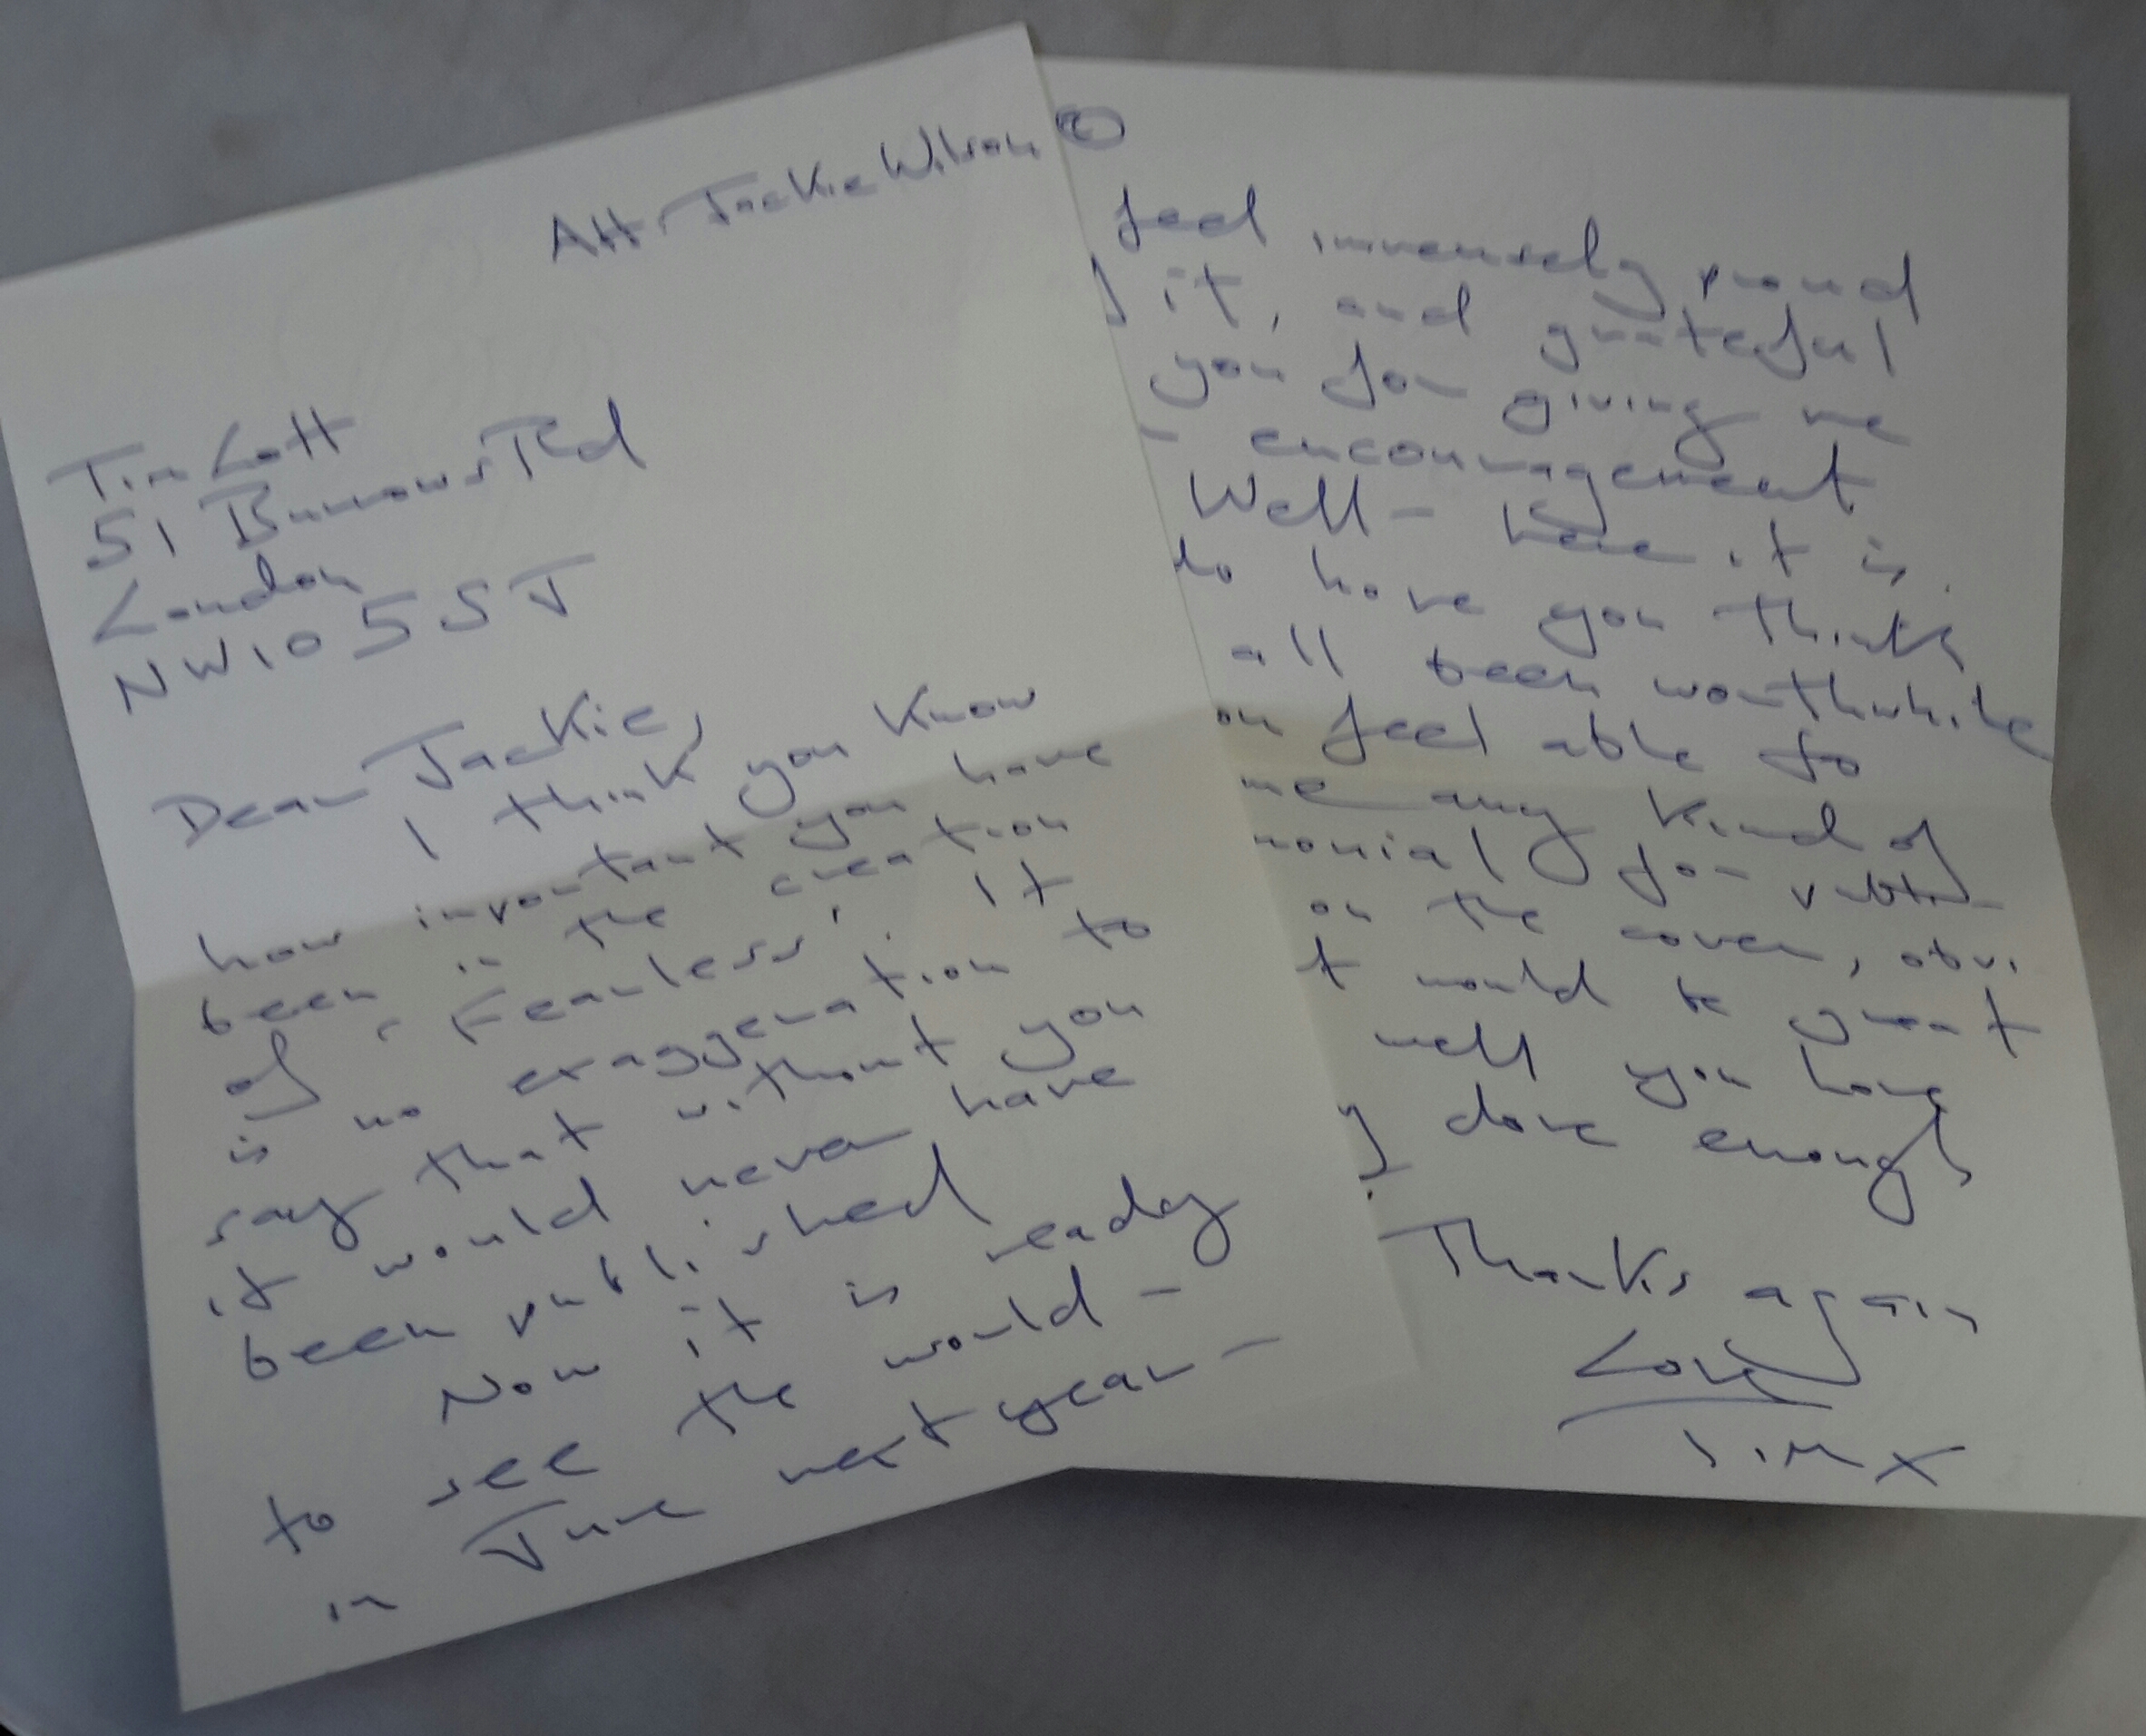 Att. Jackie Wilson
Tim Lott
51 Burrows Rd
London
NW10 5SJ
Dear Jackie,
I think you know
how important you have
been in the creation
of 'Fearless'. It
is no exaggeration to
say that without you
it would never have
been published
Now it is ready
to see the world -
in June next year -
2
feel immensely proud
it, and grateful
you for giving me
encouragement
Well - here it is.
to have you think
all been worthwhile
feel able to
me any kind of
monial for
on the cover, obvi
t would be great
well you have
y done enough
Thanks again
Love
Tim x